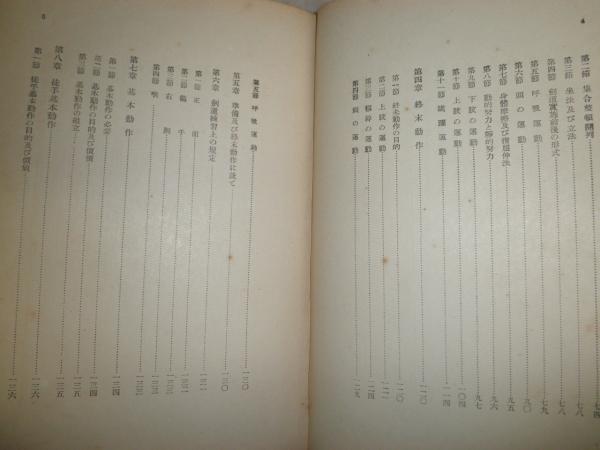 4
第二節 集合整頓隊列 七四
第三節 坐法及び立法 七八
第四節 劍道實施前後の形式 七八
第五節 呼吸運動 七九
第六節 頭の運動 九五
第七節 身體 九六
第八節 動的努力と靜的努力 九七
第九節 下肢の運動 九七
第十節 上肢の運動 一〇四
第十一節 跳躍運動 一一四
第四章 終末動作 一二〇
第一節 終末動作の目的 一二〇
第二節 上肢の運動
第三節 の運動 一二四
第四節 頭の運動 一二九
5
第五節 呼吸運動
第五章 準備及び終末動作に就て 一三〇
第六章 劍道練習上の規定 一三〇
第一節 正面 一三一
第二節 籠手 一三二
第三節 右胴 一三二
第四節 喉 一三二
第七章 基本動作 一三三
第一節 基本動作の必要 一三四
第二節 基本動作の目的及び價値 一三四
第三節 基本動作の組立 一三五
第八章 徒手基本動作 一三六
第一節 徒手基本動作の目的及び價値 一三六